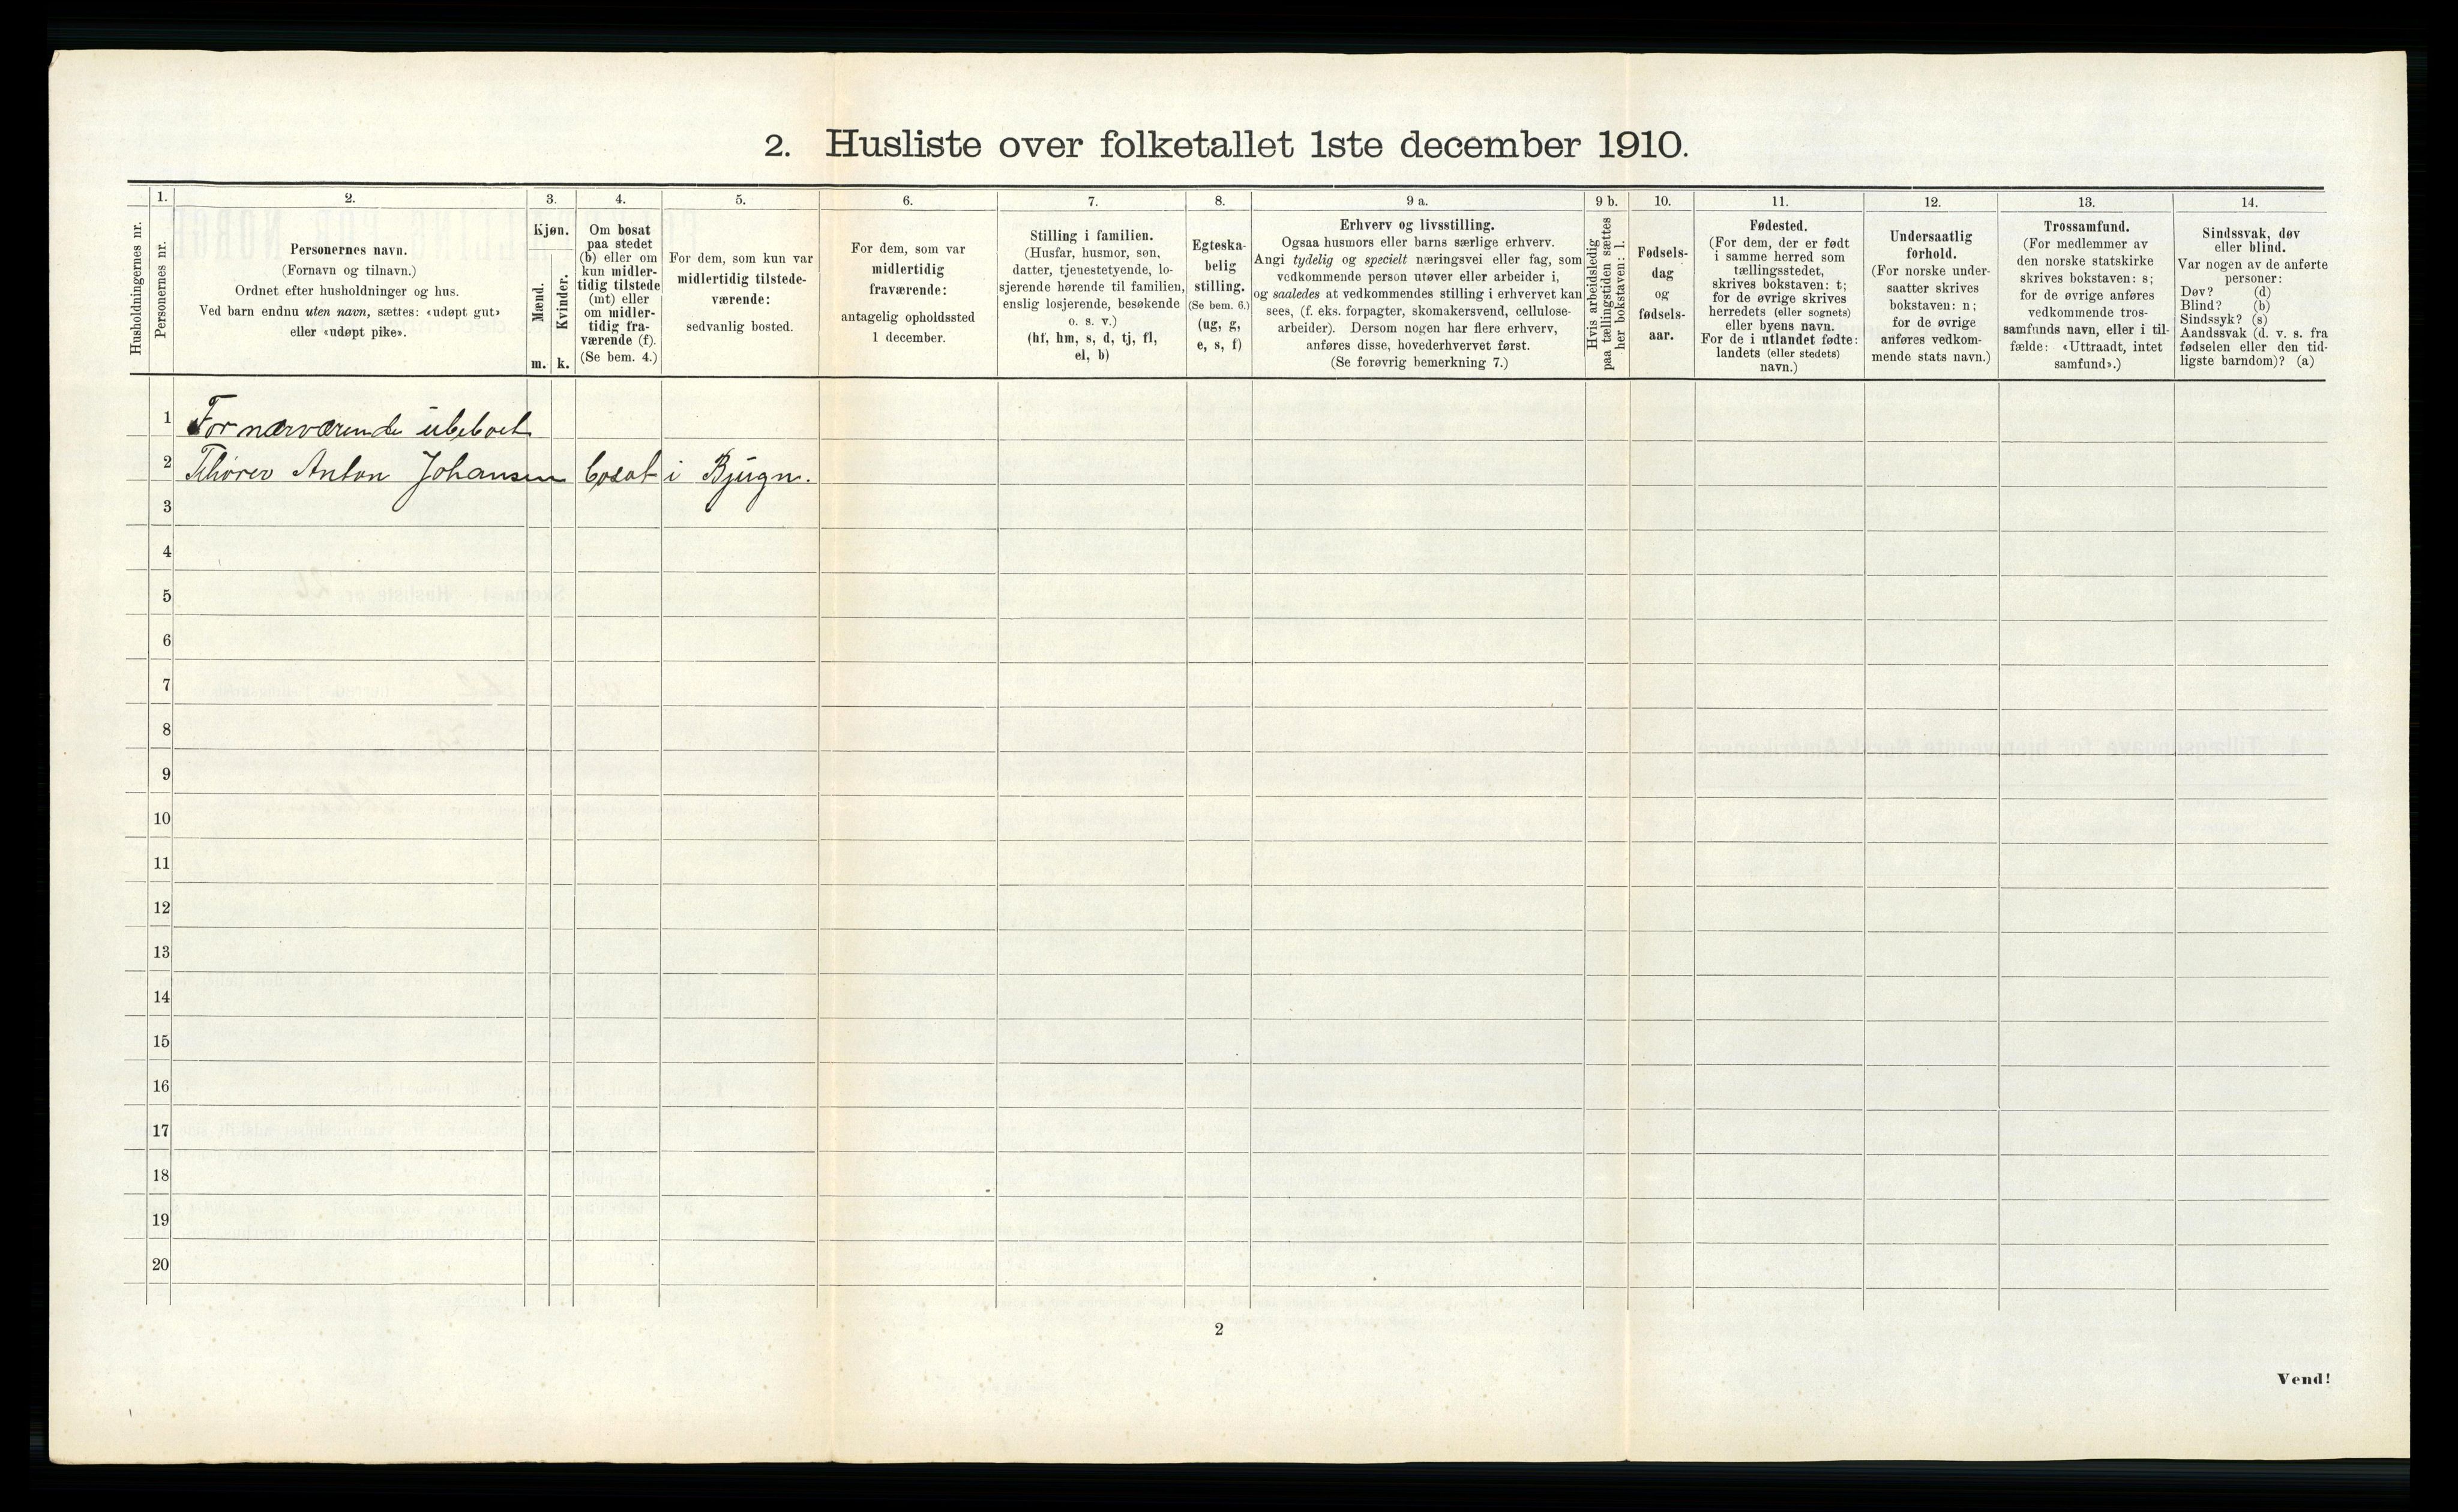 2. Husliste over folketallet 1ste december 1910.
1.
2.
3.
4.
5.
6.
7.
8.
9 a.
9 b.
10.
11.
12.
13.
14.
Husholdningernes nr.
Personernes nr.
Personernes navn.
(Fornavn og tilnavn.)
Ordnet efter husholdninger og hus.
Ved barn endnu uten navn, sættes: «udøpt gut»
eller «udøpt pike».
Kjøn.
Mænd.
Kvinder.
m.
k.
Om bosat
paa stedet
(b) eller om
kun midler-
tidig tilstede
(mt) eller
om midler-
tidig fra-
værende (f).
(Se bem. 4.)
For dem, som kun var
midlertidig tilstede-
værende:
sedvanlig bosted.
For dem, som var
midlertidig
fraværende:
antagelig opholdssted
1 december.
Stilling i familien.
(Husfar, husmor, søn,
datter, tjenestetyende, lo-
sjerende hørende til familien,
enslig losjerende, besøkende
o. s. v.)
(hf, hm, s, d, tj, fl,
el, b)
Egteska-
belig
stilling.
(Se bem. 6.)
(ug, g,
e, s, f)
Erhverv og livsstilling.
Ogsaa husmors eller barns særlige erhverv.
Angi tydelig og specielt næringsvei eller fag, som
vedkommende person utøver eller arbeider i,
og saaledes at vedkommendes stilling i erhvervet kan
sees, (f. eks. forpagter, skomakersvend, cellulose-
arbeider). Dersom nogen har flere erhverv,
anføres disse, hovederhvervet først.
(Se forøvrig bemerkning 7.)
Hvis arbeidsledig
paa tællingstiden sættes
her bokstaven: l.
Fødsels-
dag
og
fødsels-
aar.
Fødested.
(For dem, der er født
i samme herred som
tællingsstedet,
skrives bokstaven: t;
for de øvrige skrives
herredets (eller sognets)
eller byens navn.
For de i utlandet fødte:
landets (eller stedets)
navn.)
Undersaatlig
forhold.
(For norske under-
saatter skrives
bokstaven: n;
for de øvrige
anføres vedkom-
mende stats navn.)
Trossamfund.
(For medlemmer av
den norske statskirke
skrives bokstaven: s;
for de øvrige anføres
vedkommende tros-
samfunds navn, eller i til-
fælde: «Uttraadt, intet
samfund».)
Sindssvak, døv
eller blind.
Var nogen av de anførte
personer:
Døv? (d)
Blind? (b)
Sindssyk? (s)
Aandssvak (d. v. s. fra
fødselen eller den tid-
ligste barndom)? (a)
1 For nærværende ubeboet
2 Anton Johansen bosat i Bjugn.
3
4
5
6
7
8
9
10
11
12
13
14
15
16
17
18
19
20
2
Vend!